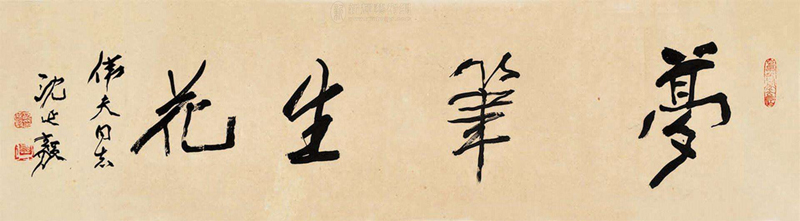 夢筆生花
偉夫同志
沈延毅